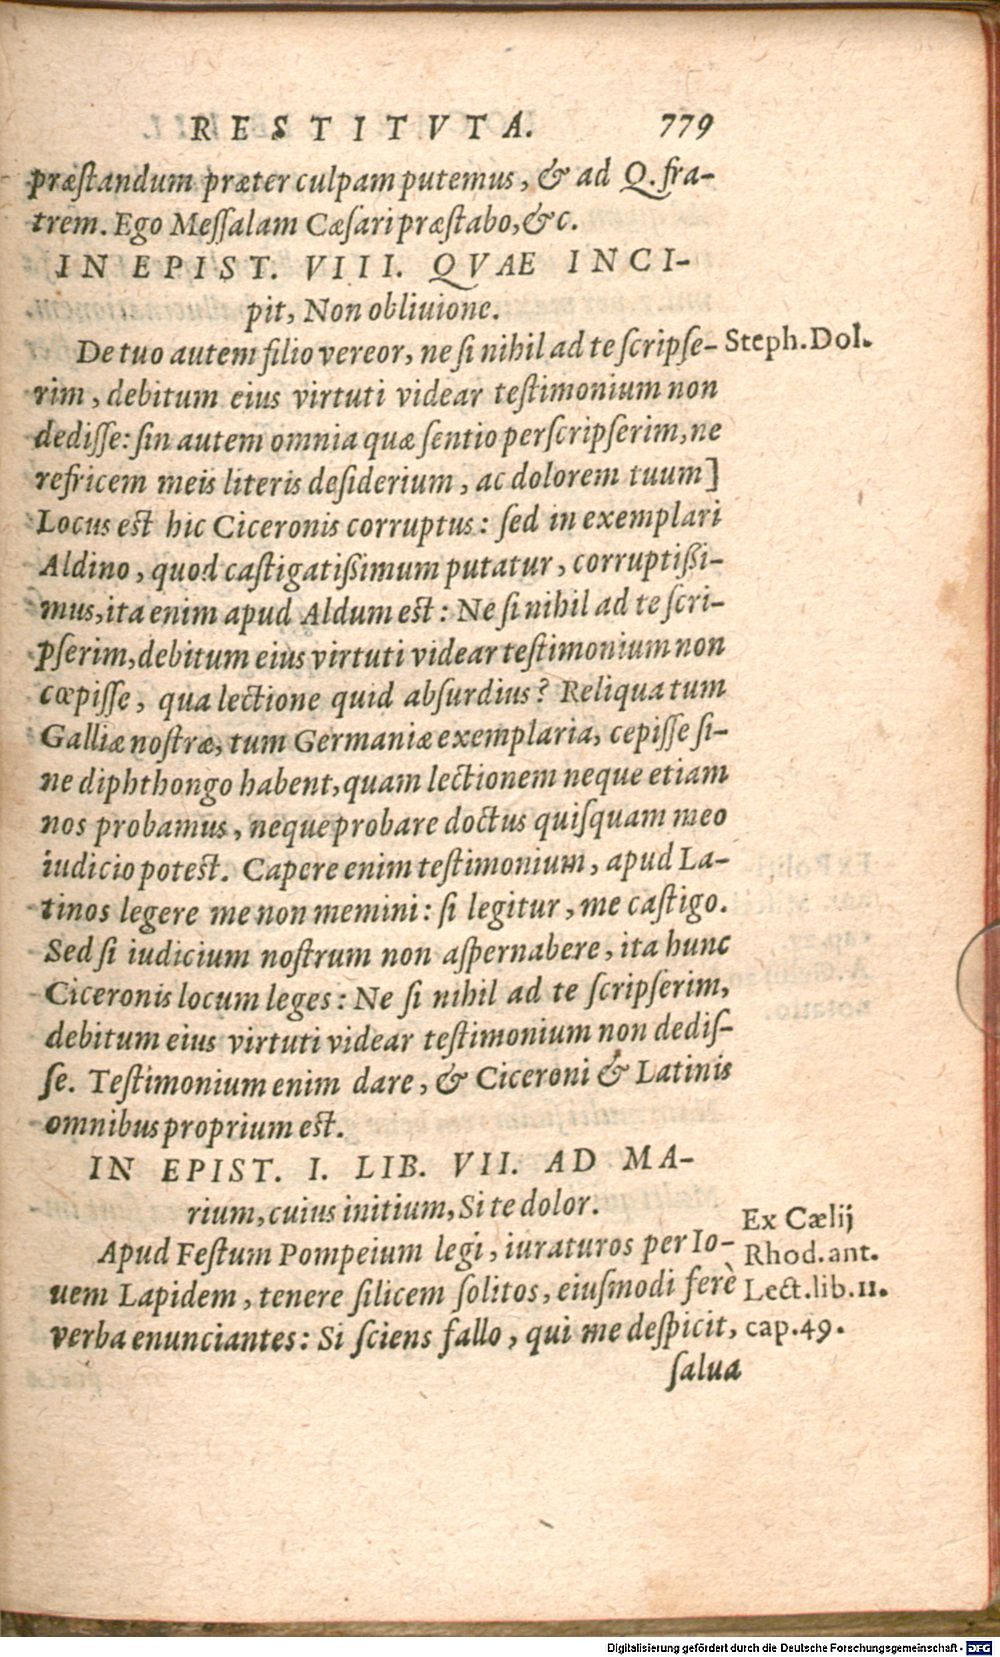 RESTITVTA. 779
præſtandum præter culpam putemus, & ad Q. fra-
trem. Ego Meſſalam Cæſari præſtabo, &c.
IN EPIST. VIII. QVAE INCI-
pit, Non obliuione.
De tuo autem filio vereor, ne ſi nihil ad te ſcripſe- Steph. Dol.
rim, debitum eius virtuti videar teſtimonium non
dediſſe: ſin autem omnia quæ ſentio perſcripſerim, ne
refricem meis literis deſiderium, ac dolorem tuum]
Locus eſt hic Ciceronis corruptus: ſed in exemplari
Aldino, quod caſtigatißimum putatur, corruptißi-
mus, ita enim apud Aldum eſt: Ne ſi nihil ad te ſcri-
pſerim, debitum eius virtuti videar teſtimonium non
cœpiſſe, qua lectione quid abſurdius? Reliqua tum
Galliæ noſtræ, tum Germaniæ exemplaria, cepiſſe ſi-
ne diphthongo habent, quam lectionem neque etiam
nos probamus, neque probare doctus quiſquam meo
iudicio poteſt. Capere enim teſtimonium, apud La-
tinos legere me non memini: ſi legitur, me caſtigo.
Sed ſi iudicium noſtrum non aſpernabere, ita hunc
Ciceronis locum leges: Ne ſi nihil ad te ſcripſerim,
debitum eius virtuti videar teſtimonium non dediſ-
ſe. Teſtimonium enim dare, & Ciceroni & Latinis
omnibus proprium eſt.
IN EPIST. I. LIB. VII. AD MA-
rium, cuius initium, Si te dolor.
Apud Feſtum Pompeium legi, iuraturos per Io-
uem Lapidem, tenere ſilicem ſolitos, eiuſmodi ferè
verba enunciantes: Si ſciens fallo, qui me deſpicit,
Ex Cælij
Rhod. ant.
Lect. lib. 11.
cap. 49.
ſalua
Digitalisierung gefördert durch die Deutsche Forschungsgemeinschaft - DFG